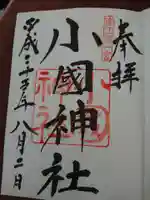 奉拝
小國神社
平成二十五年八月二日